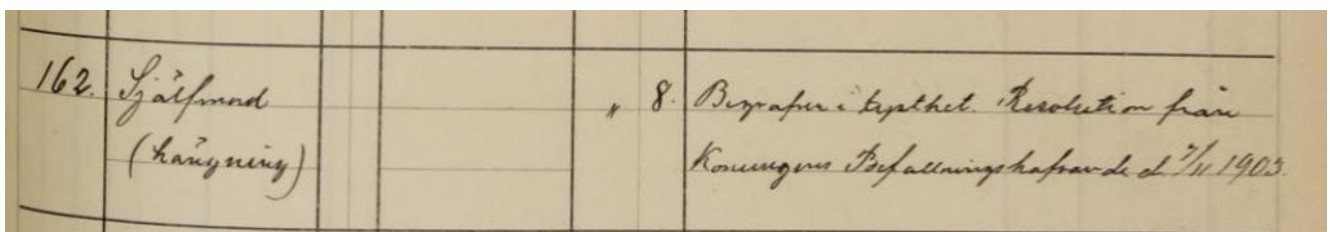 162. Själfmord " 8. Begrafven i tysthet. Resolution från
(hängning) Konungens Befallningshafvande d. 7/11 1903.